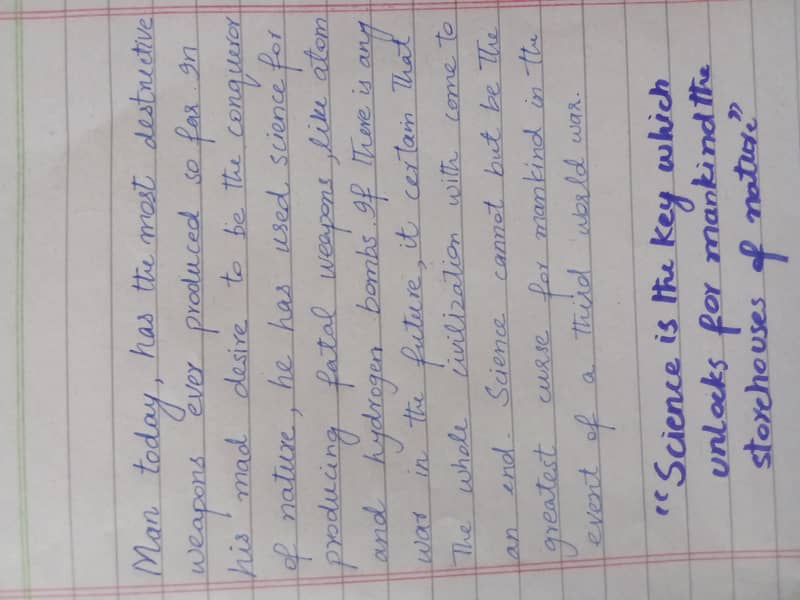 Man today, has the most destructive
weapons ever produced so far. In
his mad desire to be the conqueror
of nature, he has used science for
producing fatal weapons, like atom
and hydrogen bombs. If there is any
war in the future, it certain that
The whole civilization with come to
an end. Science cannot but be the
greatest curse for mankind in the
event of a third world war.
"Science is the key which
unlocks for mankind the
storehouses of nature"